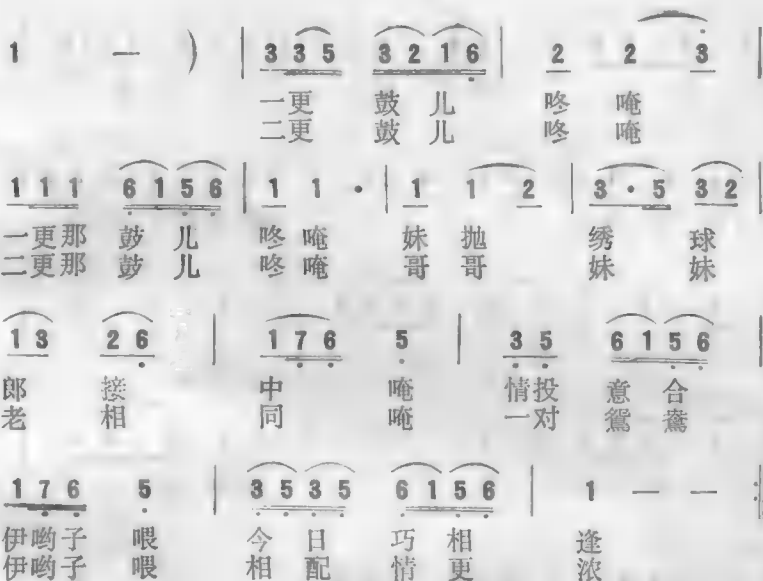 1 — ) | 3 3 5 3 2 1 6 | 2 2 3 |
一更 鼓 儿 咚 唵
二更 鼓 儿 咚 唵
1 1 1 6 1 5 6 | 1 1 · | 1 1 2 | 3 · 5 3 2
一更那 鼓 儿 咚 唵 妹 抛 绣 球
二更那 鼓 儿 咚 唵 哥 哥 妹 妹
1 3 2 6 | 1 7 6 5 | 3 5 6 1 5 6
郎 接 中 唵 情投 意 合
老 相 同 唵 一对 鴛 鸯
1 7 6 5 | 3 5 3 5 6 1 5 6 | 1 — — :
伊哟子 喂 今 日 巧 相 逢
伊哟子 喂 相 配 情 更 浓